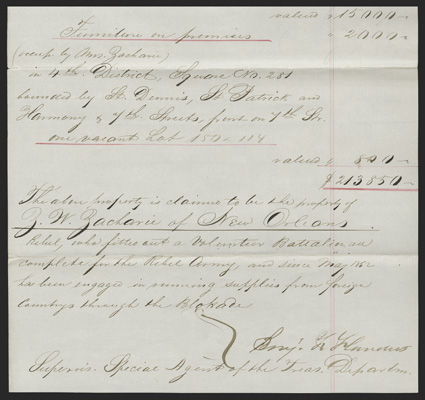 valued $15000-
Furniture on premises " 2000-
(occup. by Mrs. Zacharie)
in 4th. District, Square No. 281
bounded by St. Dennis, St. Patrick and
Harmony & 7th. Streets, front on 7th Str.
one vacant Lot 150 x 114
valued $ 800-
$ 213850-
The above property is claimed to be the property of
J. W. Zacharie of New Orleans
Rebel, who fitted out a Volunteer Battalion
complete for the Rebel Army, and since May 1862
has been engaged in running supplies from foreign
Countrys through the Blokade
Benj. F. Flanders
Supervis. Special Agent of the Treas. Departm.